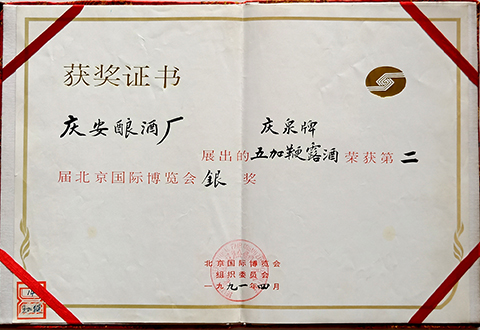 获奖证书
庆安酿酒厂 庆泉牌
展出的五加鞭露酒荣获第二
届北京国际博览会銀奖
北京国际博览会
组织委员会
一九九一年四月